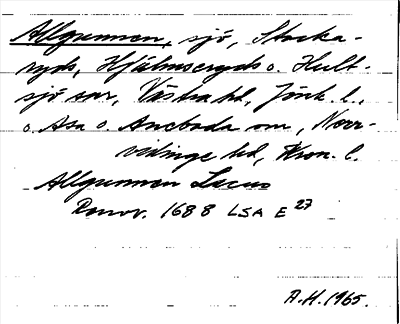 Allgunnen, sjö, Stocka-
ryds, Hjälmseryds o. Hult-
sjö snr, Västra hd, Jönk. l.,
o. Asa o. Aneboda snr, Norr-
vidinge hd, Kron. l.
Allgunnen Lacus
Renov. 1688 LSA E 27
A.H. 1965.